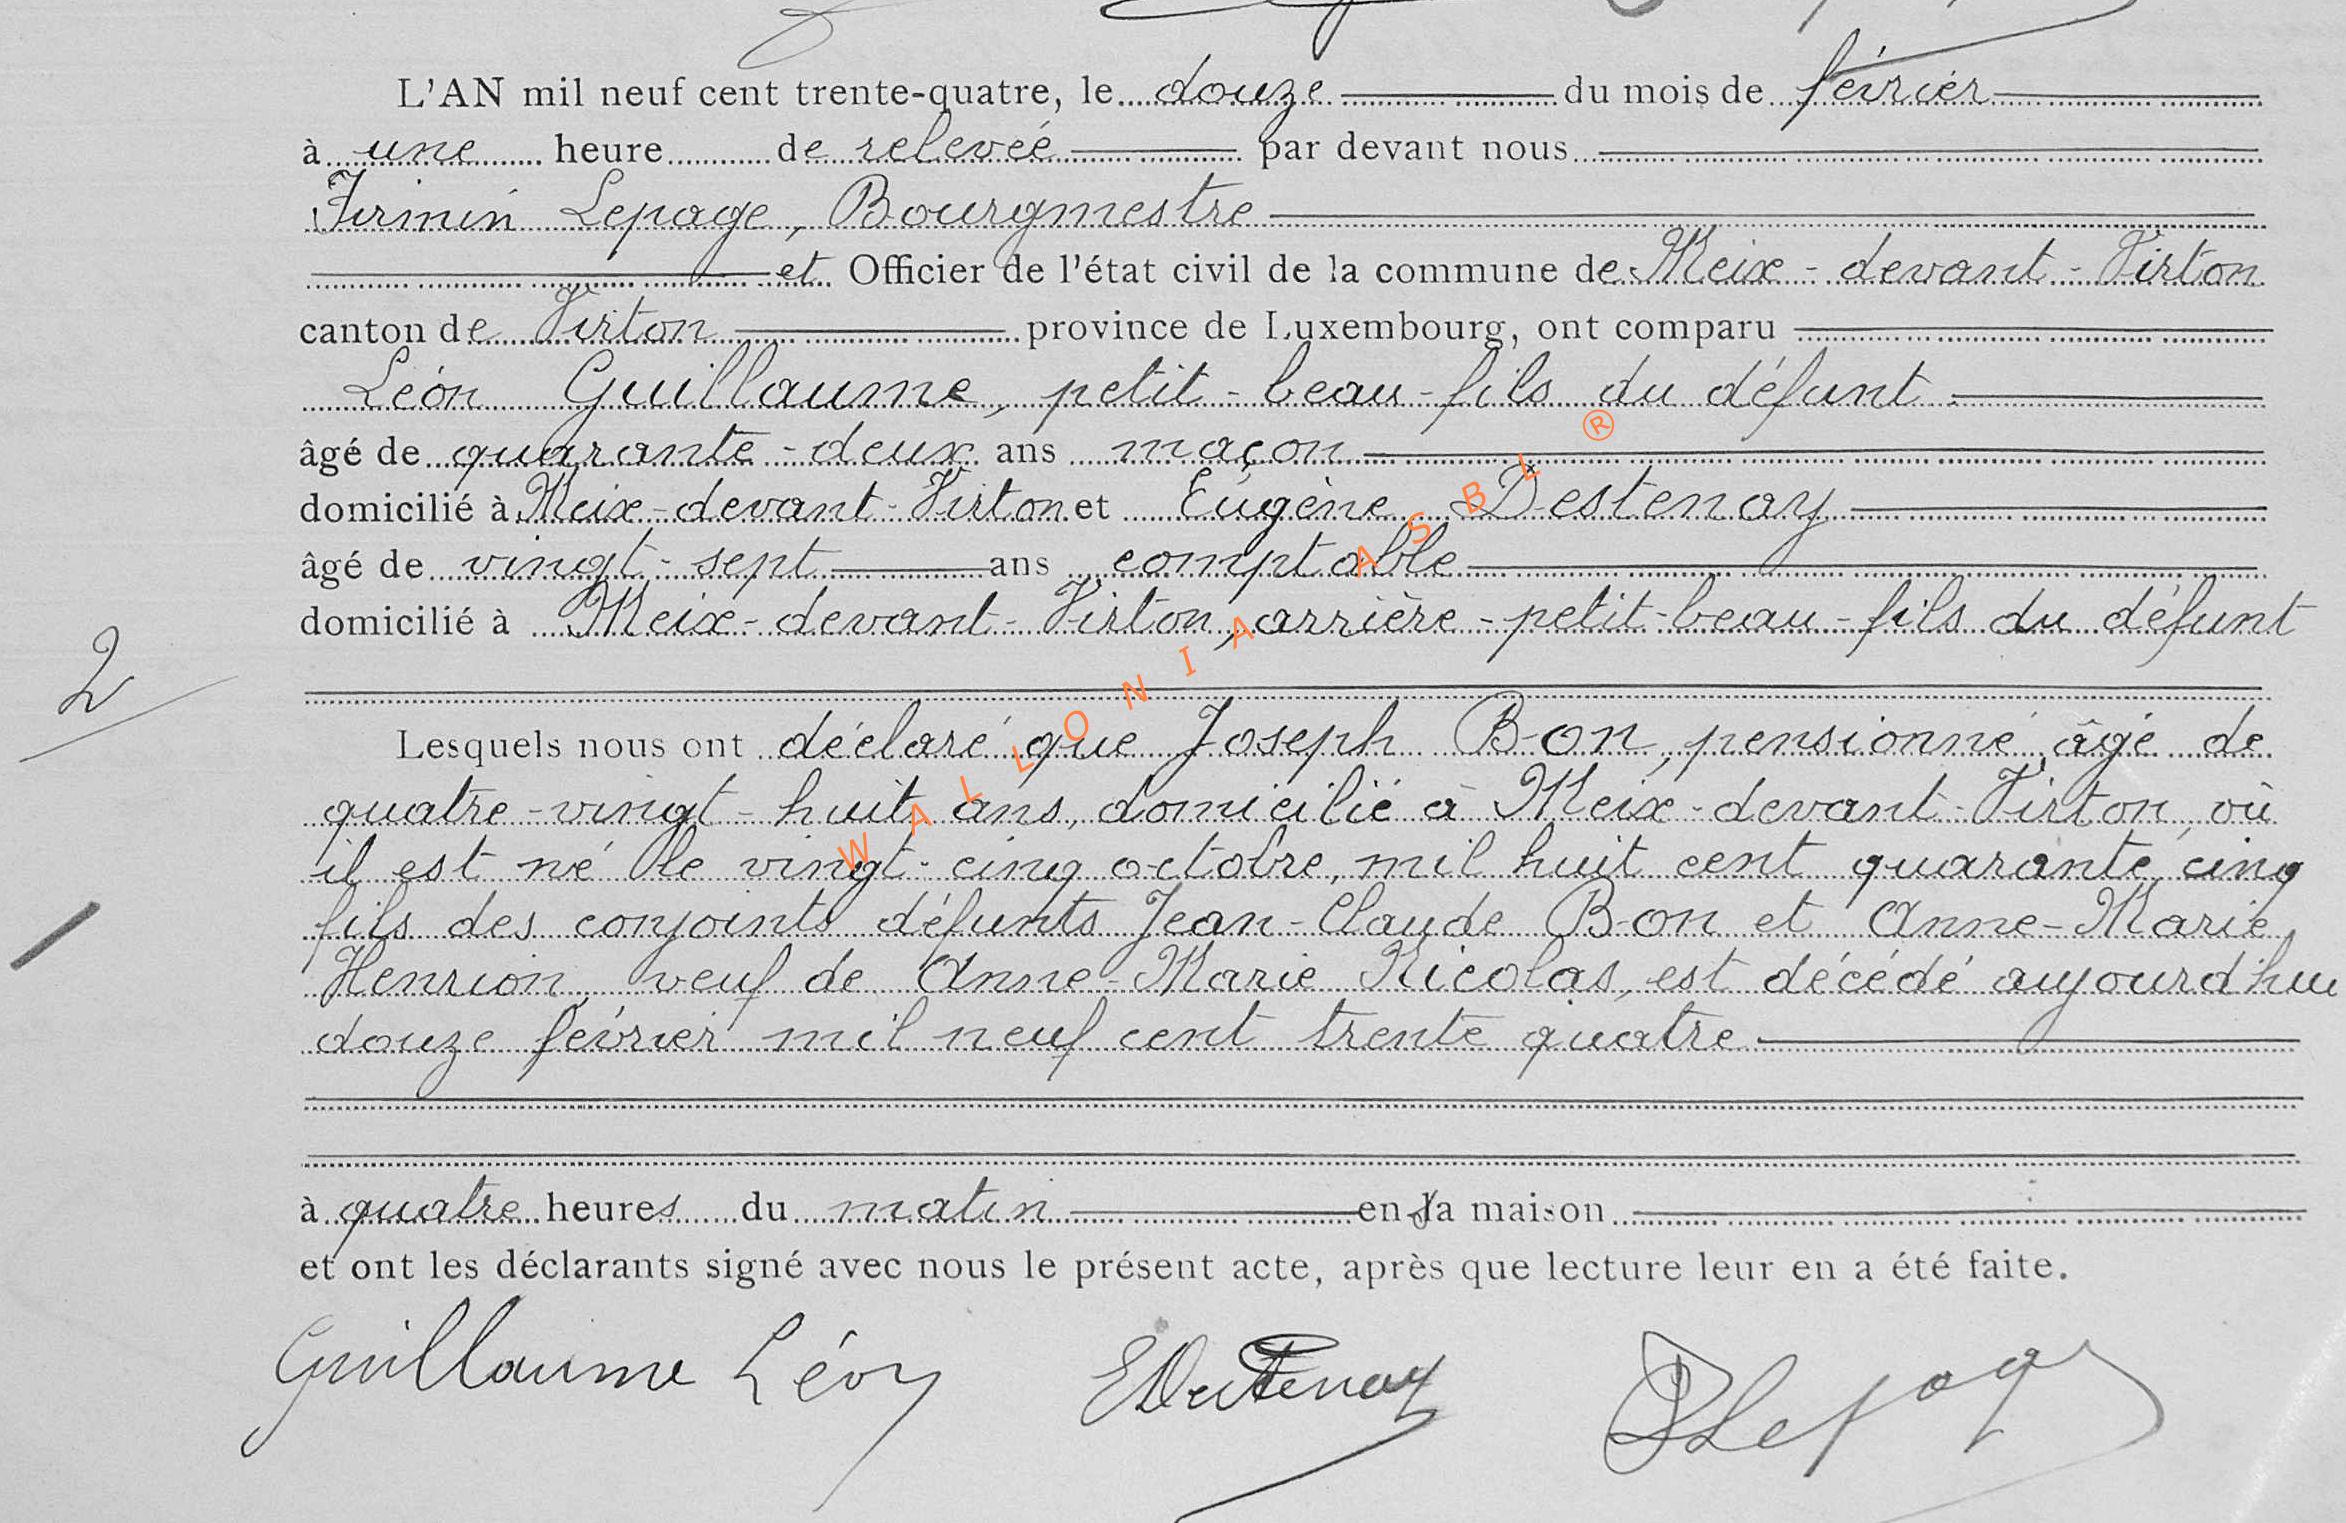 L'AN mil neuf cent trente-quatre, le douze du mois de février
à une heure de relevée par devant nous
Firmin Lepage, Bourgmestre
et Officier de l'état civil de la commune de Meix-devant-Virton
canton de Virton province de Luxembourg, ont comparu
Léon Guillaume, petit-beau-fils du défunt
âgé de quarante-deux ans maçon
domicilié à Meix-devant-Virton et Eugène Destenay
âgé de vingt-sept ans comptable
domicilié à Meix-devant-Virton, arrière-petit-beau-fils du défunt
2
Lesquels nous ont déclaré que Joseph Bon, pensionné, âgé de
quatre-vingt-huit ans, domicilié à Meix-devant-Virton, où
il est né le vingt-cinq octobre, mil huit cent quarante cinq
fils des conjoints défunts Jean-Claude Bon et Anne-Marie
Henrion, veuf de Anne-Marie Nicolas, est décédé aujourd'hui
douze février mil neuf cent trente quatre
à quatre heures du matin en sa maison
et ont les déclarants signé avec nous le présent acte, après que lecture leur en a été faite.
Guillaume Léon EDestenay FLepage
WALLONIA ASBL ®